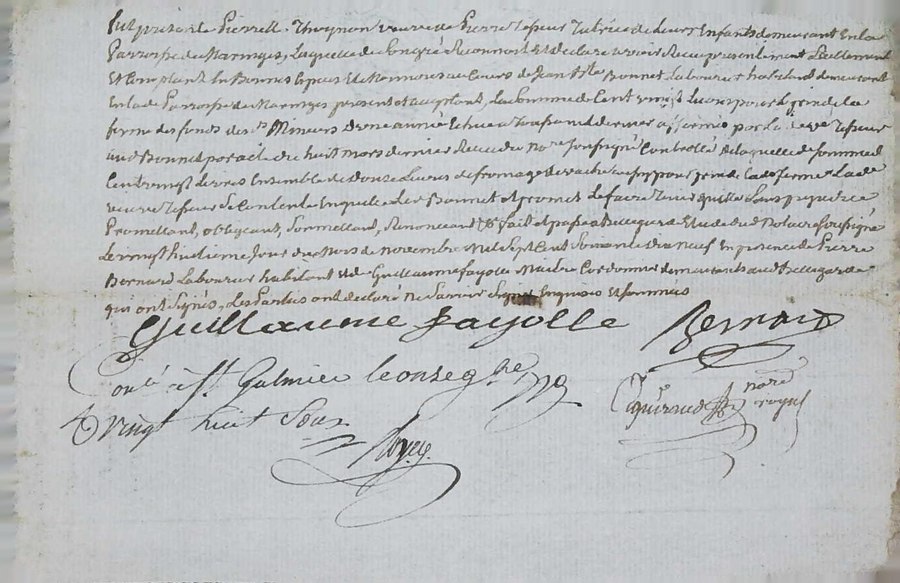 fut présente Pierrette Thuynon veuve de Pierre Tisseur tutrice de leurs enfants demeurant en la
parroisse de Maringes, laquelle de son gré reconnoit et declare avoir reçu presentement reellement
et comptant en bonnes especes et monnoies au cours de Jean Bte Bonnet laboureur habitand demeurant
en lade parroisse de Maringes present et acceptant, la somme de cent vingt livres pour le prix de la
ferme des fonds des ds mineurs d'une année échue a Toussaint dernier affermée par lade veve Tisseur
aud Bonnet par acte du huit mars dernier reçu du nore soussigné controllé de laquelle de somme de
cent vingt livres ensemble de douze livres de fromage de vache aussy pour prix de lade ferme lade
veuve Tisseur se contente en quitte led Bonnet et promet le faire tenir quitte sans prejudice
Promettant, obligeant, soumettant, renonceant &c fait et passé a Bellegarde etude dud notaire soussigné
le vingt huitieme jour du mois de novembre mil sept cent soixante dix neuf en presence de Pierre
Bernard laboureur habitant et de Guillaume fayolle maitre cordonnier demeurants aud Bellegarde
qui ont signés, les parties ont déclaré ne savoir signer enquises et sommées
Guillaume fayolle Bernard
Conlé à St Galmier le onze xbre 1779
&
vingt huit sous
nore
royal